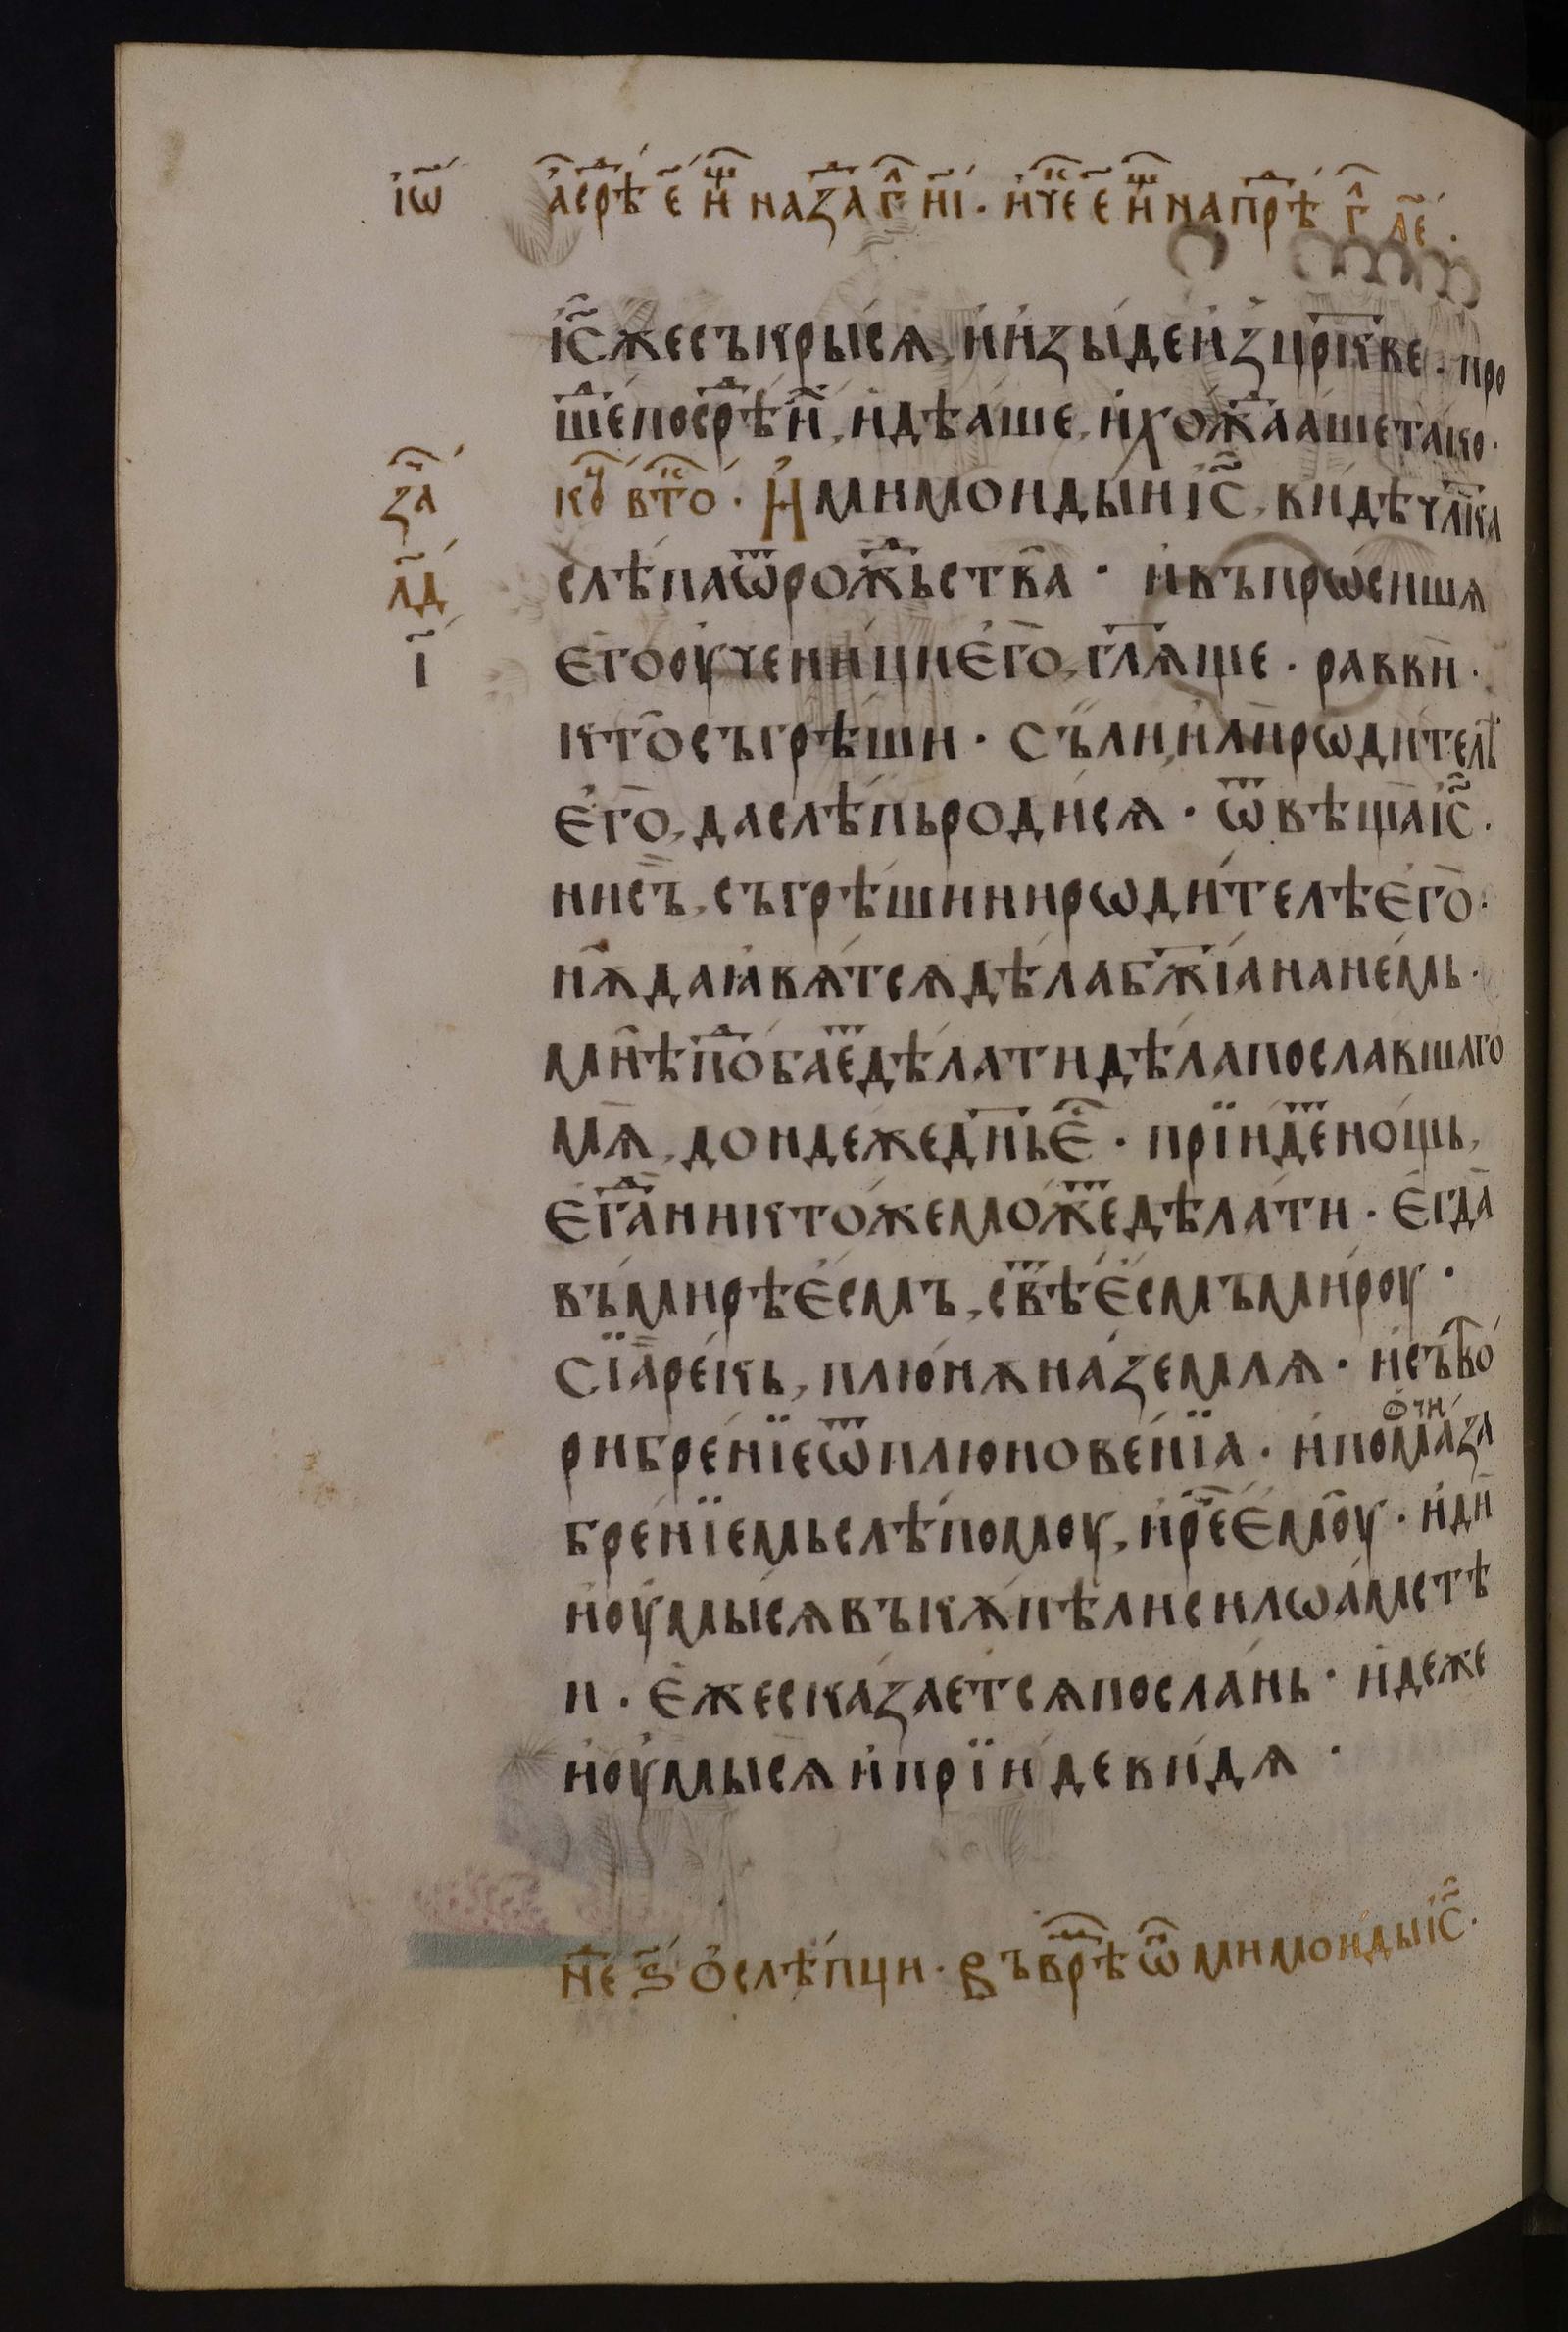 і҃ѡ
а҆ срѣ е҃ нⷲ҇ на заⷱ҇ гл҃ н҃і · и҆ чеⷭ҇ е҃ нⷲ҇ напрѣⷣ гл҃ л҃е ·
і҃с же съкрыⷭ҇сѧ, и҆ и҆зы́де и҆зц҃ркве · про
шеⷣ посрѣⷣ и҆́, и҆дѣаше, и҆ хожⷣааше тако ·
за
л҃д
і҃
коⷰ҇ втоⷬ҇ · И҆ мимои́ды и҆ і҃с, видѣ чл҃ка
слѣпа ѿ рожⷣьства · и҆ въпрѡсишѧ
е҆го ѹ҆чени́ци е҆го, гл҃ѧще · равви ·
кто съгрѣши · съ ли, и҆ли рѡди́телѣ
е҆го, да слѣпь роди́сѧ · ѿвѣща і҃с ·
ни съ, съгрѣши ни рѡди́телѣ е҆го :
нѫ да ꙗвѧ́тсѧ дѣла бж҃їа на не́мь ·
мнѣ поⷣбаеⷮ дѣлати дѣла пославшаго
мѧ, до́ндеже дн҃ь е҆ · прїи́деⷮ но́щь,
е҆гаⷣ никто́же мо́жеⷮ дѣла́ти · е҆гда
въ ми́рѣ е҆смъ, свѣⷮ е҆смъ ми́рѹ ·
сїа ре́кь, плю́нѫ на́ землѧ · и҆ сътво
ри бре́нїе ѿ плюнове́нїа · и҆ пома́за ѻ҆чи
бре́нїемь слѣпомѹ, и҆ реⷱ҇ е҆мѹ · и҆ди
и҆ ѹ҆мы́сѧ въ кѫпѣли силѡа́мстѣ
и · е҆же ска́заетсѧ посла́нь · и҆́деже
и҆ ѹ҆мы́сѧ и҆ прїи́де ви́дѧ ·
неⷣ ѕ҃ ѻ҆ слѣпци · въ врⷨѣ ѡ҆но мимои́ды і҃с ·